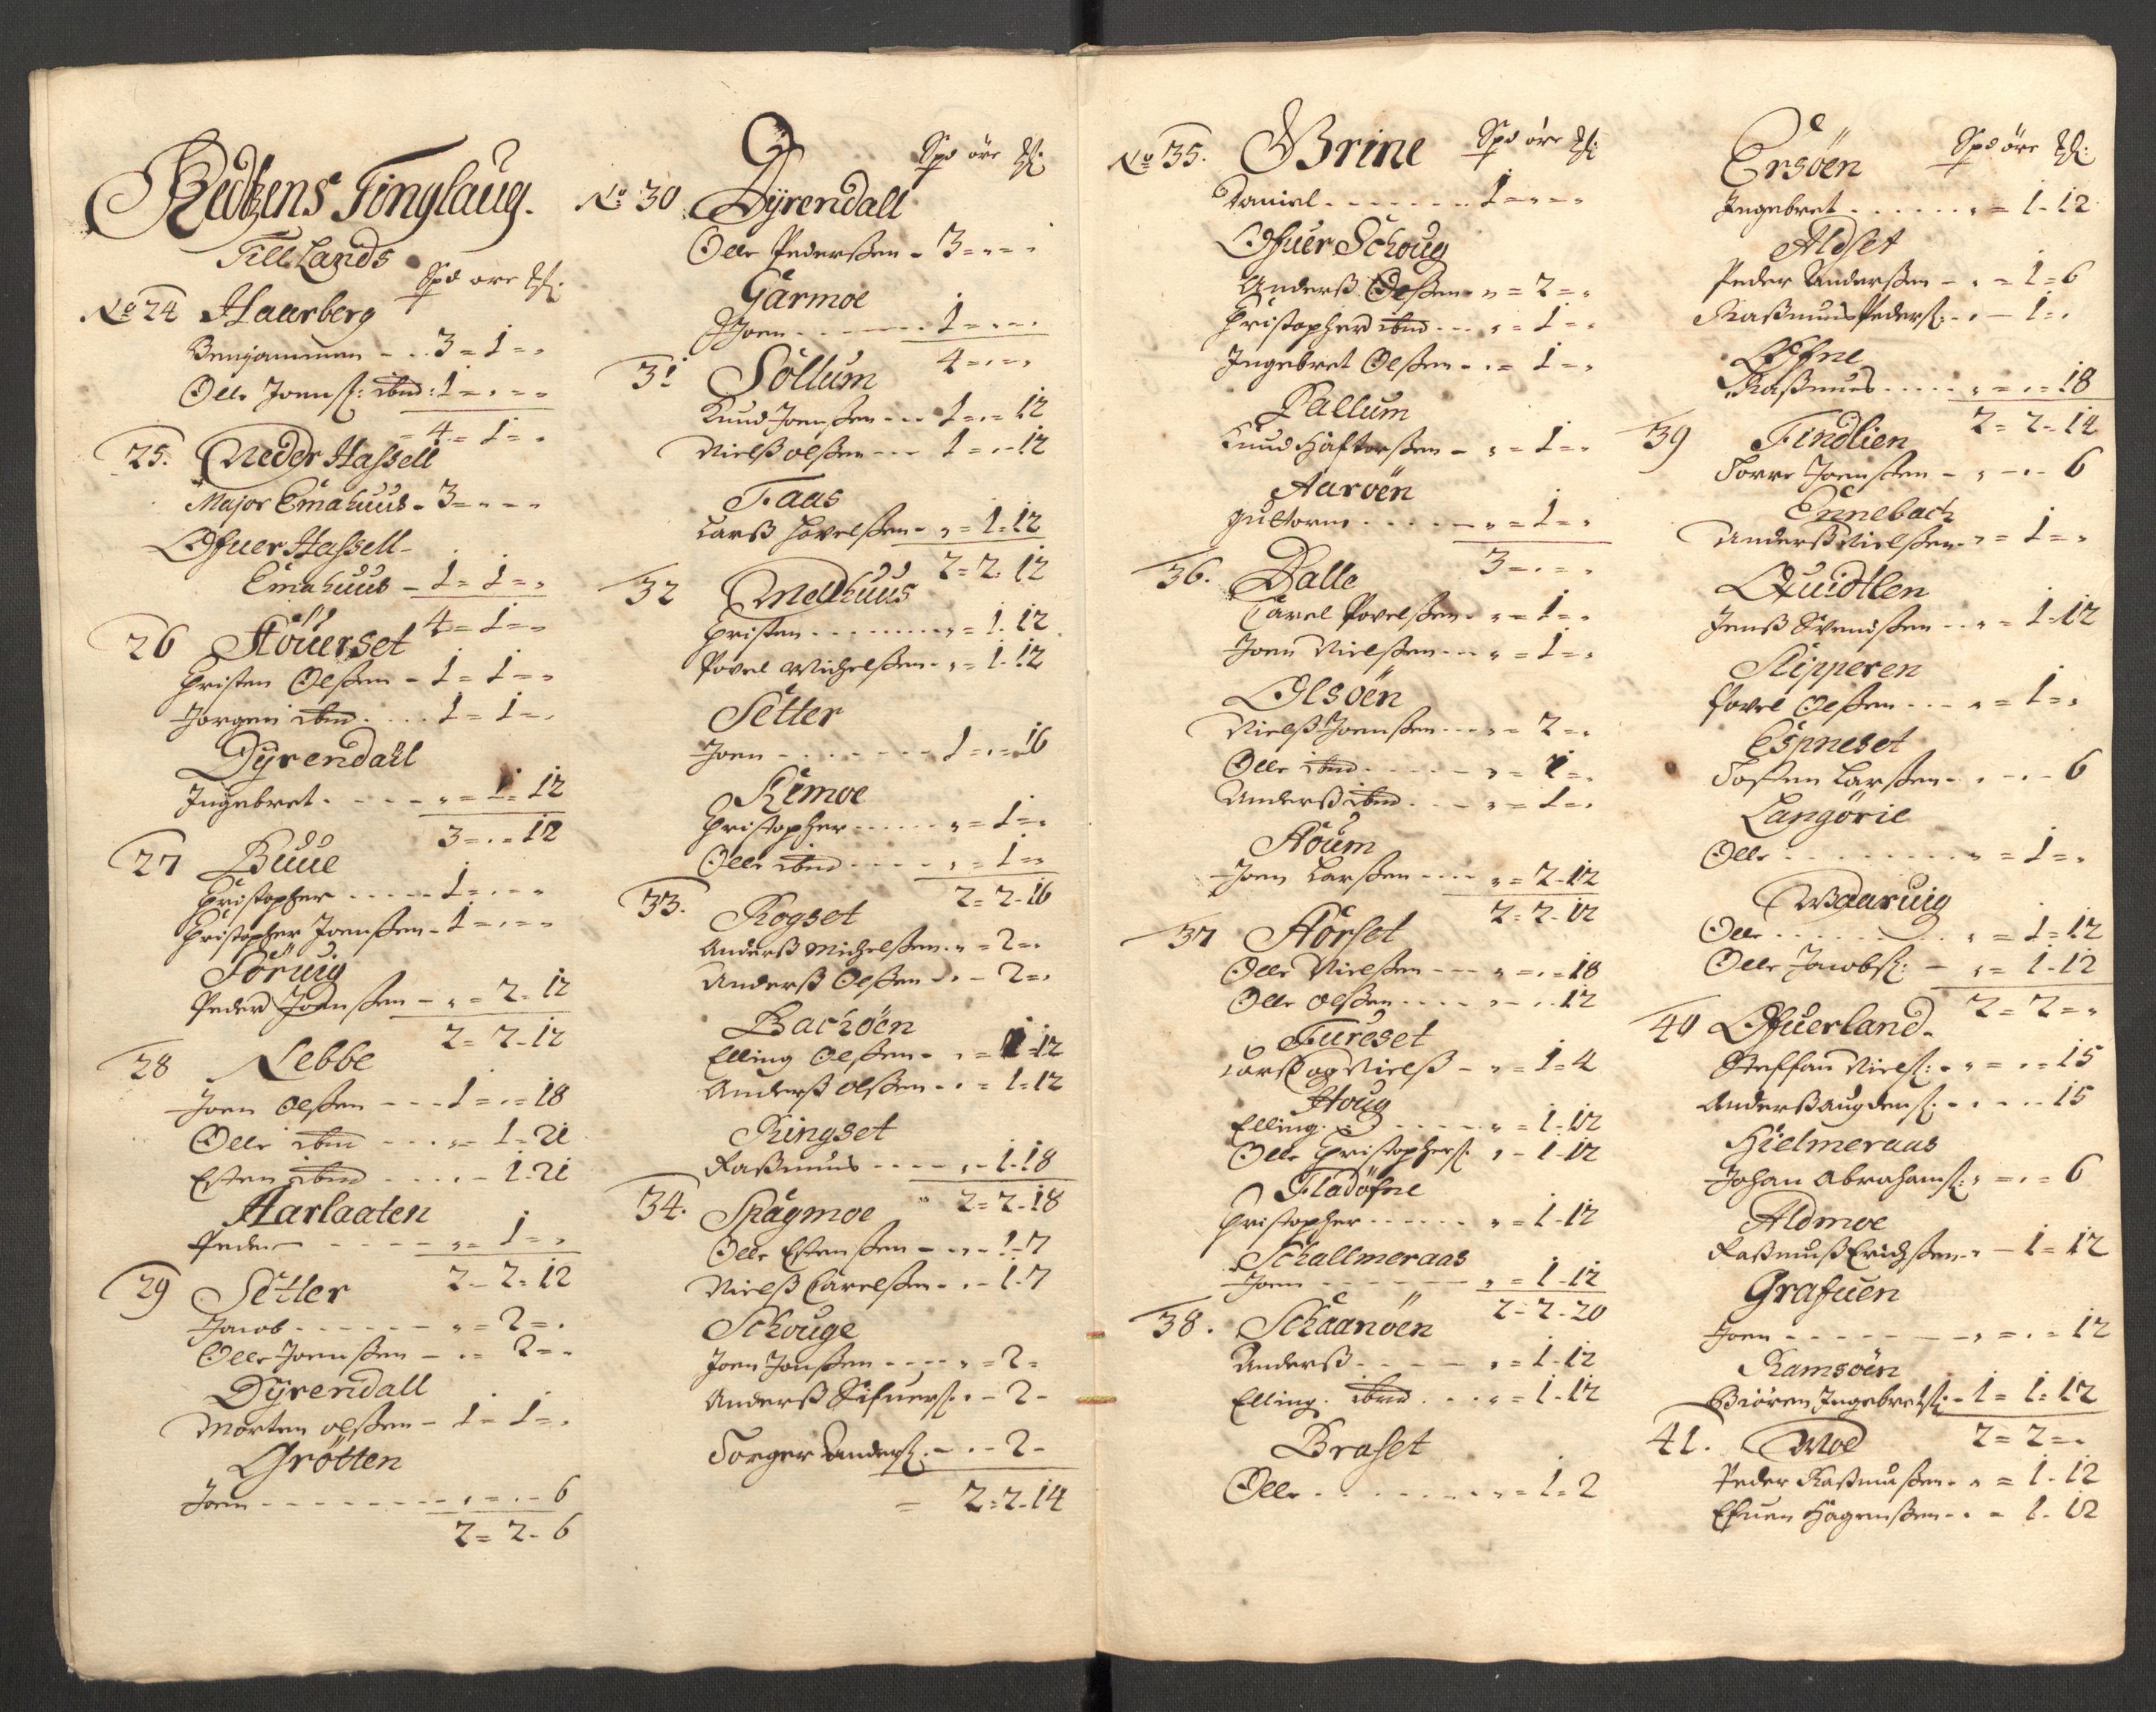 Redtzens Tinglaug.
Till Lands
Spd ore
No 24 Haarberg
Benjammen - . . 3 = 1 = "
Olle Joensß: ibnd : 1 = " = "
= 4 = 1 = "
25. Neder Hassell
Major Emahuus - 3 = " - "
Ofuer Hassell -
Emahuus - 1 = 1 = "
4 = 1 = "
26 Höuerset
Christen Olssen - 1 = 1 = "
Jorgen ibnd . . . . 1 = 1 = "
Dÿrendahl
Ingebret . - - - - " = 1 = 12
3 = " = 12
27 Buue
Christopher - - - - - 1 = " - "
Christopher Joenssen - 1 = " = "
Söruig
Peder Joenssen - " = 2 - 12
2 = 2 - 12
28 Lebbe
Joen Olssen - - - 1 = " = 18
Olle ibnd - - - " = 1 = 21
Esten ibnd . . . . - 1 - 21
Harlaaten
Peder - - - - - " = 1 = "
2 - 2 = 12
29 Setter
Jacob - - - - - - " = 2 = "
Olle Joenssen - " = 2 = "
Dÿrendall
Morten olssen - 1 - 1 = "
Grötten
Joen - - - - - - - - " = " - 6
2 = 2 - 6
Spd öre
No 30 Dÿrendall
Olle Pederssen - 3 = " = "
Garmoe
Joen - - - - - - - 1 = " = "
4 = " = "
31 Sollum
Knud Joenssen - - - 1 = " = 12
Nielß olssen - - - 1 = " - 12
Faas
Larß Havelssen - " = 1 = 12
2 = 2 = 12
32 Melhuus
Christen - - - - - - - - " = 1 - 12
Povel Michelssen - " = 1 - 12
Setter
Joen - - - - - - - - 1 = " = 16
Remoe
Christopher - - - - - " = 1 = "
Olle ibnd - - - - " = 1 = "
2 = 2 - 16
33. Rogset
Anderß Michelssen - " = 2 = "
Anderß Olssen - " - 2 = "
Bachöen
Elling Olssen - " = 1 = 12
Anderß olssen - " = 1 = 12
Ringset
Rassmus - - - - " - 1 - 18
2 = 2 - 18
34. Skagmoe
Olle Estenssen - " - 1 - 7
Nielß Carelssen - " - 1 - 7
Schouge
Joen Jonssen - - - - " = 2 =
Anderß Sifuersß: " - 2 -
Torger Andersß: - " - 2 -
= 2 = 2 - 14
Spd öre
No 35. Brine
Daniel - - - - - - - - 1 = " = "
Ofuer Schoug
Anderß Olssen - " = 2 = "
Christopher ibnd - - " = 1 = "
Ingebret Olssen - " = 1 = "
Pallum
Knud Haftorssen - " = 1 = "
Aaroen
Guttorm - - - - - " = 1 = "
3 = " = "
36. Dalle
Carel Povelssen - " = 1 = "
Joen Nielssen - - - " = 1 = "
Olsöen
Nielß Joenssen - - - " = 2 = "
Olle ibnd - - - - " = 1 = "
Anderß ibnd . - - " = 1 = "
Houm
Joen Larssen - - - " = 2 - 12
2 = 2 - 12
37 Hörset
Olle Nielssen - - - " = " = 18
Olle olssen - - - - " - " - 12
Fureset
Larß og Nielß - " = 1 = 4
Houg
Elling - - - - - - - " = 1 - 12
Olle Christophersß: " - 1 - 12
Fladöfne
Christopher - - - - - - " = 1 - 12
Schallmeraas
Joen - - - - - - " = 1 - 12
2 - 2 - 20
38. Schaanöen
Anderß - - - - - " = 1 - 12
Elling. ibnd - - - " = 1 - 12
Braset
Olle - - - - - - - - " = 1 = 2
Spd öre
Ersöen
Ingebret - - - - - - " = 1 - 12
Aldset
Peder Anderssen - " = 1 = 6
Rassmus Pedersß: - " - 1 = "
Öfne
Rassmus - - - - - " = " = 18
2 = 2 - 14
39 Findlien
Torre Joenssen - " - " - 6
Ennebach
Anderß Nielssen - " = 1 = "
Quidtlen
Jenß Svendssen - - " = 1 - 12
Skipperen
Povel Olssen - - - " = 1 = "
Espneset
Tosten Larssen - " - " - 6
Langörie
Olle - - - - - - - - - " = 1 = "
Waaruig
Olle - - - - - - - - " = 1 = 12
Olle Jacobsß: - " = 1 - 12
2 = 2 = "
40 Ofuerland -
Steffan Nielsß: - " = " = 15
Anderß augdensß: - " - " - 15
Hielmeraas
Johan Abrahamsß: " = " = 6
Aldmoe
Rassmuß Erichssen - " - 1 = 12
Grafuen
Joen - - - - - - - - " = " = 12
Ramsöen
Biören Ingebretsß: - 1 = 1 = 12
2 = 2 = "
41. Moe
Peder Rassmussen - " = 1 - 12
Efuen Hagenssen - " = 1 - 12